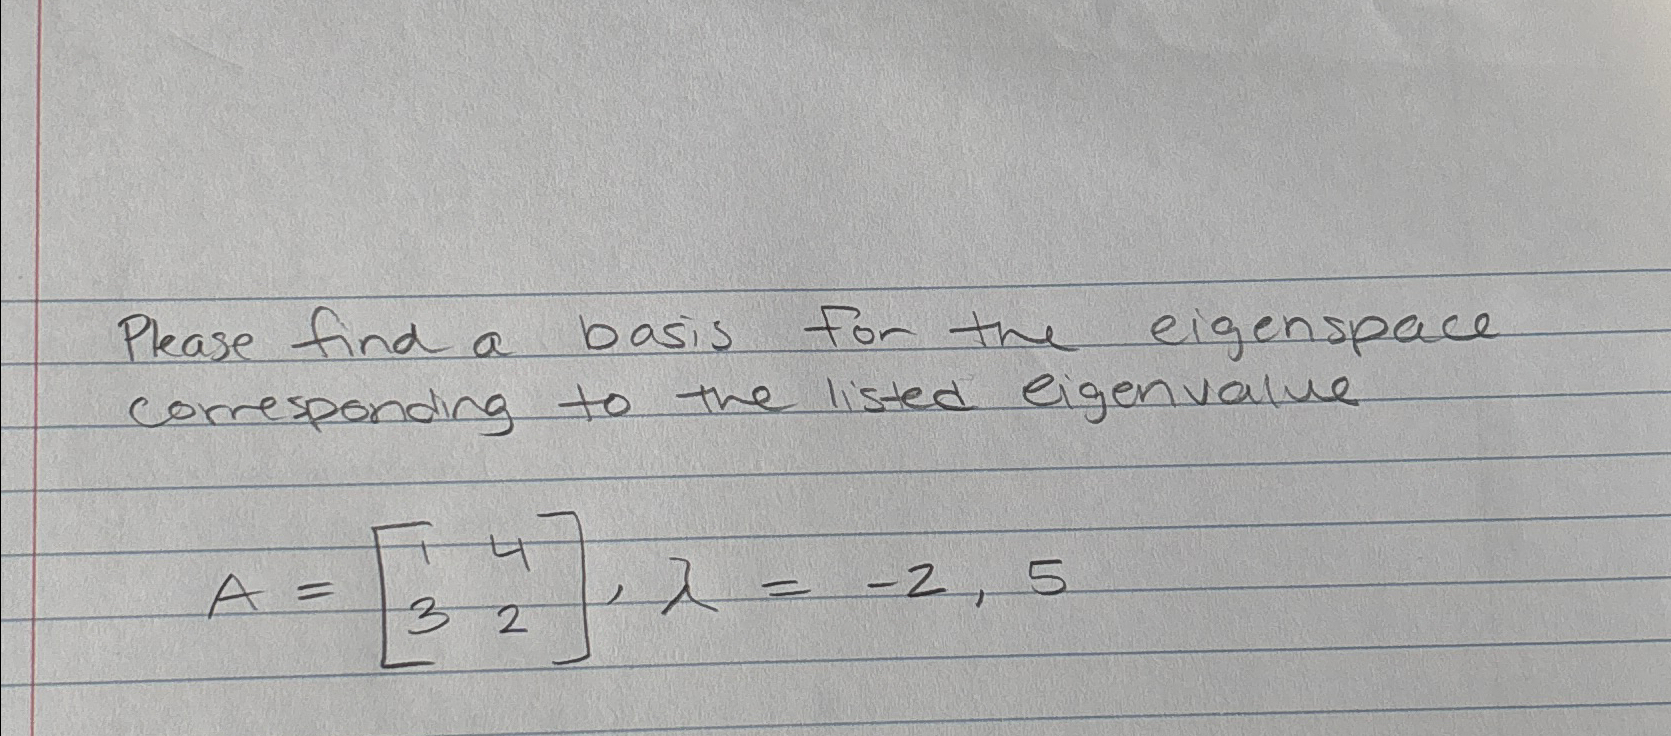 Please find a basis for the eigenspace
corresponding to the listed eigenvalue
A = [1 4
3 2], λ = -2, 5